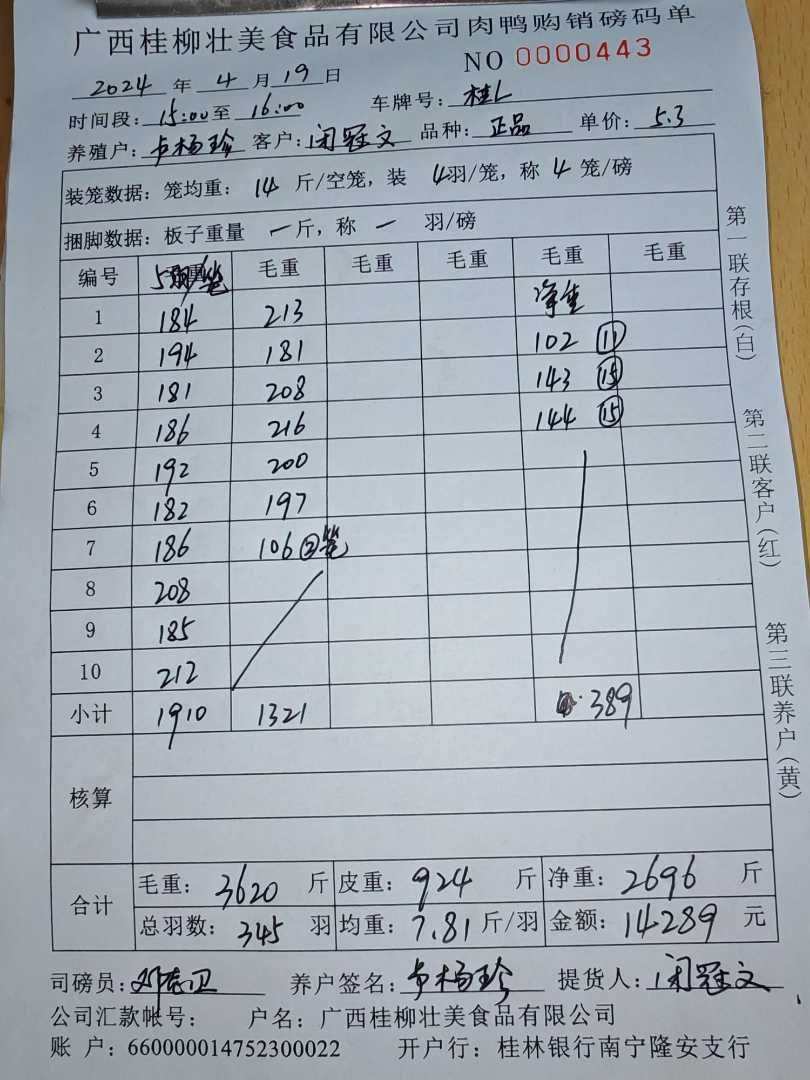 广西桂柳壮美食品有限公司肉鸭购销磅码单
NO 0000443
2024 年 4 月 19 日
时间段: 15:00 至 16:00 车牌号: 桂L
养殖户: 卢杨珍 客户: 闭冠文 品种: 正品 单价: 5.3
装笼数据: 笼均重: 14 斤/空笼, 装 4羽/笼, 称 4 笼/磅
捆脚数据: 板子重量 一斤, 称 一 羽/磅
编号 5 笼 毛重 毛重 毛重 毛重 毛重
1 184 213 净重
2 194 181 102 ⑪
3 181 208 143 ⑮
4 186 216 144 ⑮
5 192 200
6 182 197
7 186 106 ②笼
8 208
9 185
10 212
小计 1910 1321 389
核算
合计 毛重: 3620 斤 皮重: 924 斤 净重: 2696 斤
总羽数: 345 羽 均重: 7.81 斤/羽 金额: 14289 元
司磅员: 邓 卫 养户签名: 卢杨珍 提货人: 闭冠文
公司汇款帐号: 户名: 广西桂柳壮美食品有限公司
账 户: 660000014752300022 开户行: 桂林银行南宁隆安支行
第一联存根(白)
第二联客户(红)
第三联养户(黄)